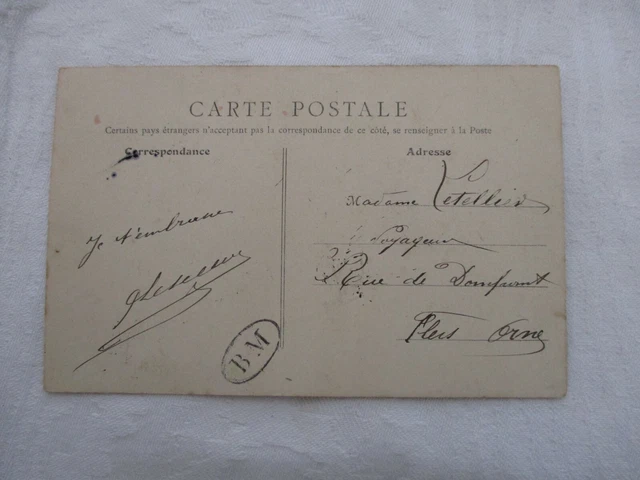 CARTE POSTALE
Certains pays étrangers n'acceptant pas la correspondance de ce côté, se renseigner à la Poste
Correspondance
Je t'embrasse
Adresse
Madame Letellier
Voyageur
Rue de Domfront
Flers Orne
B.M